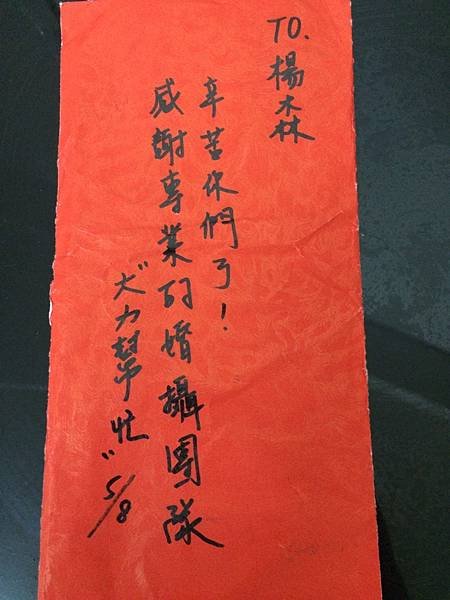 TO. 楊森
辛苦你們了!
感謝專業的婚攝團隊
"大力幫忙" 5/8